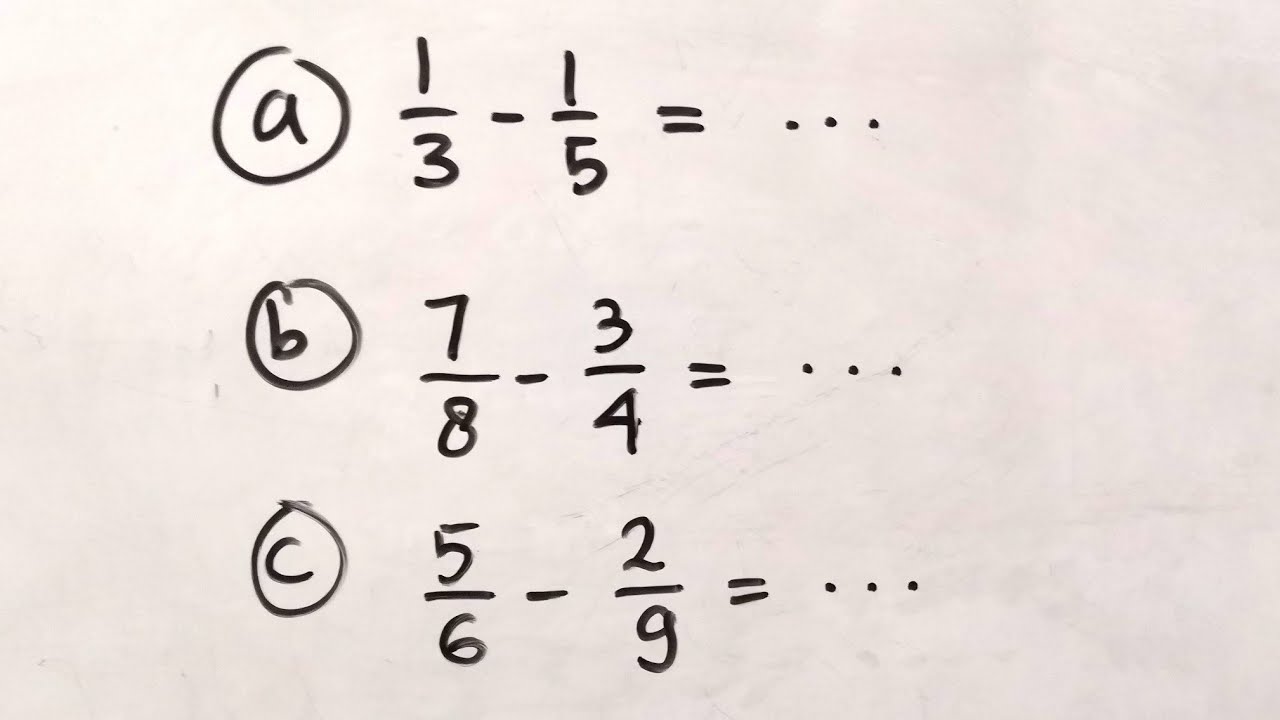 a 1/3 - 1/5 = ...
b 7/8 - 3/4 = ...
c 5/6 - 2/9 = ...